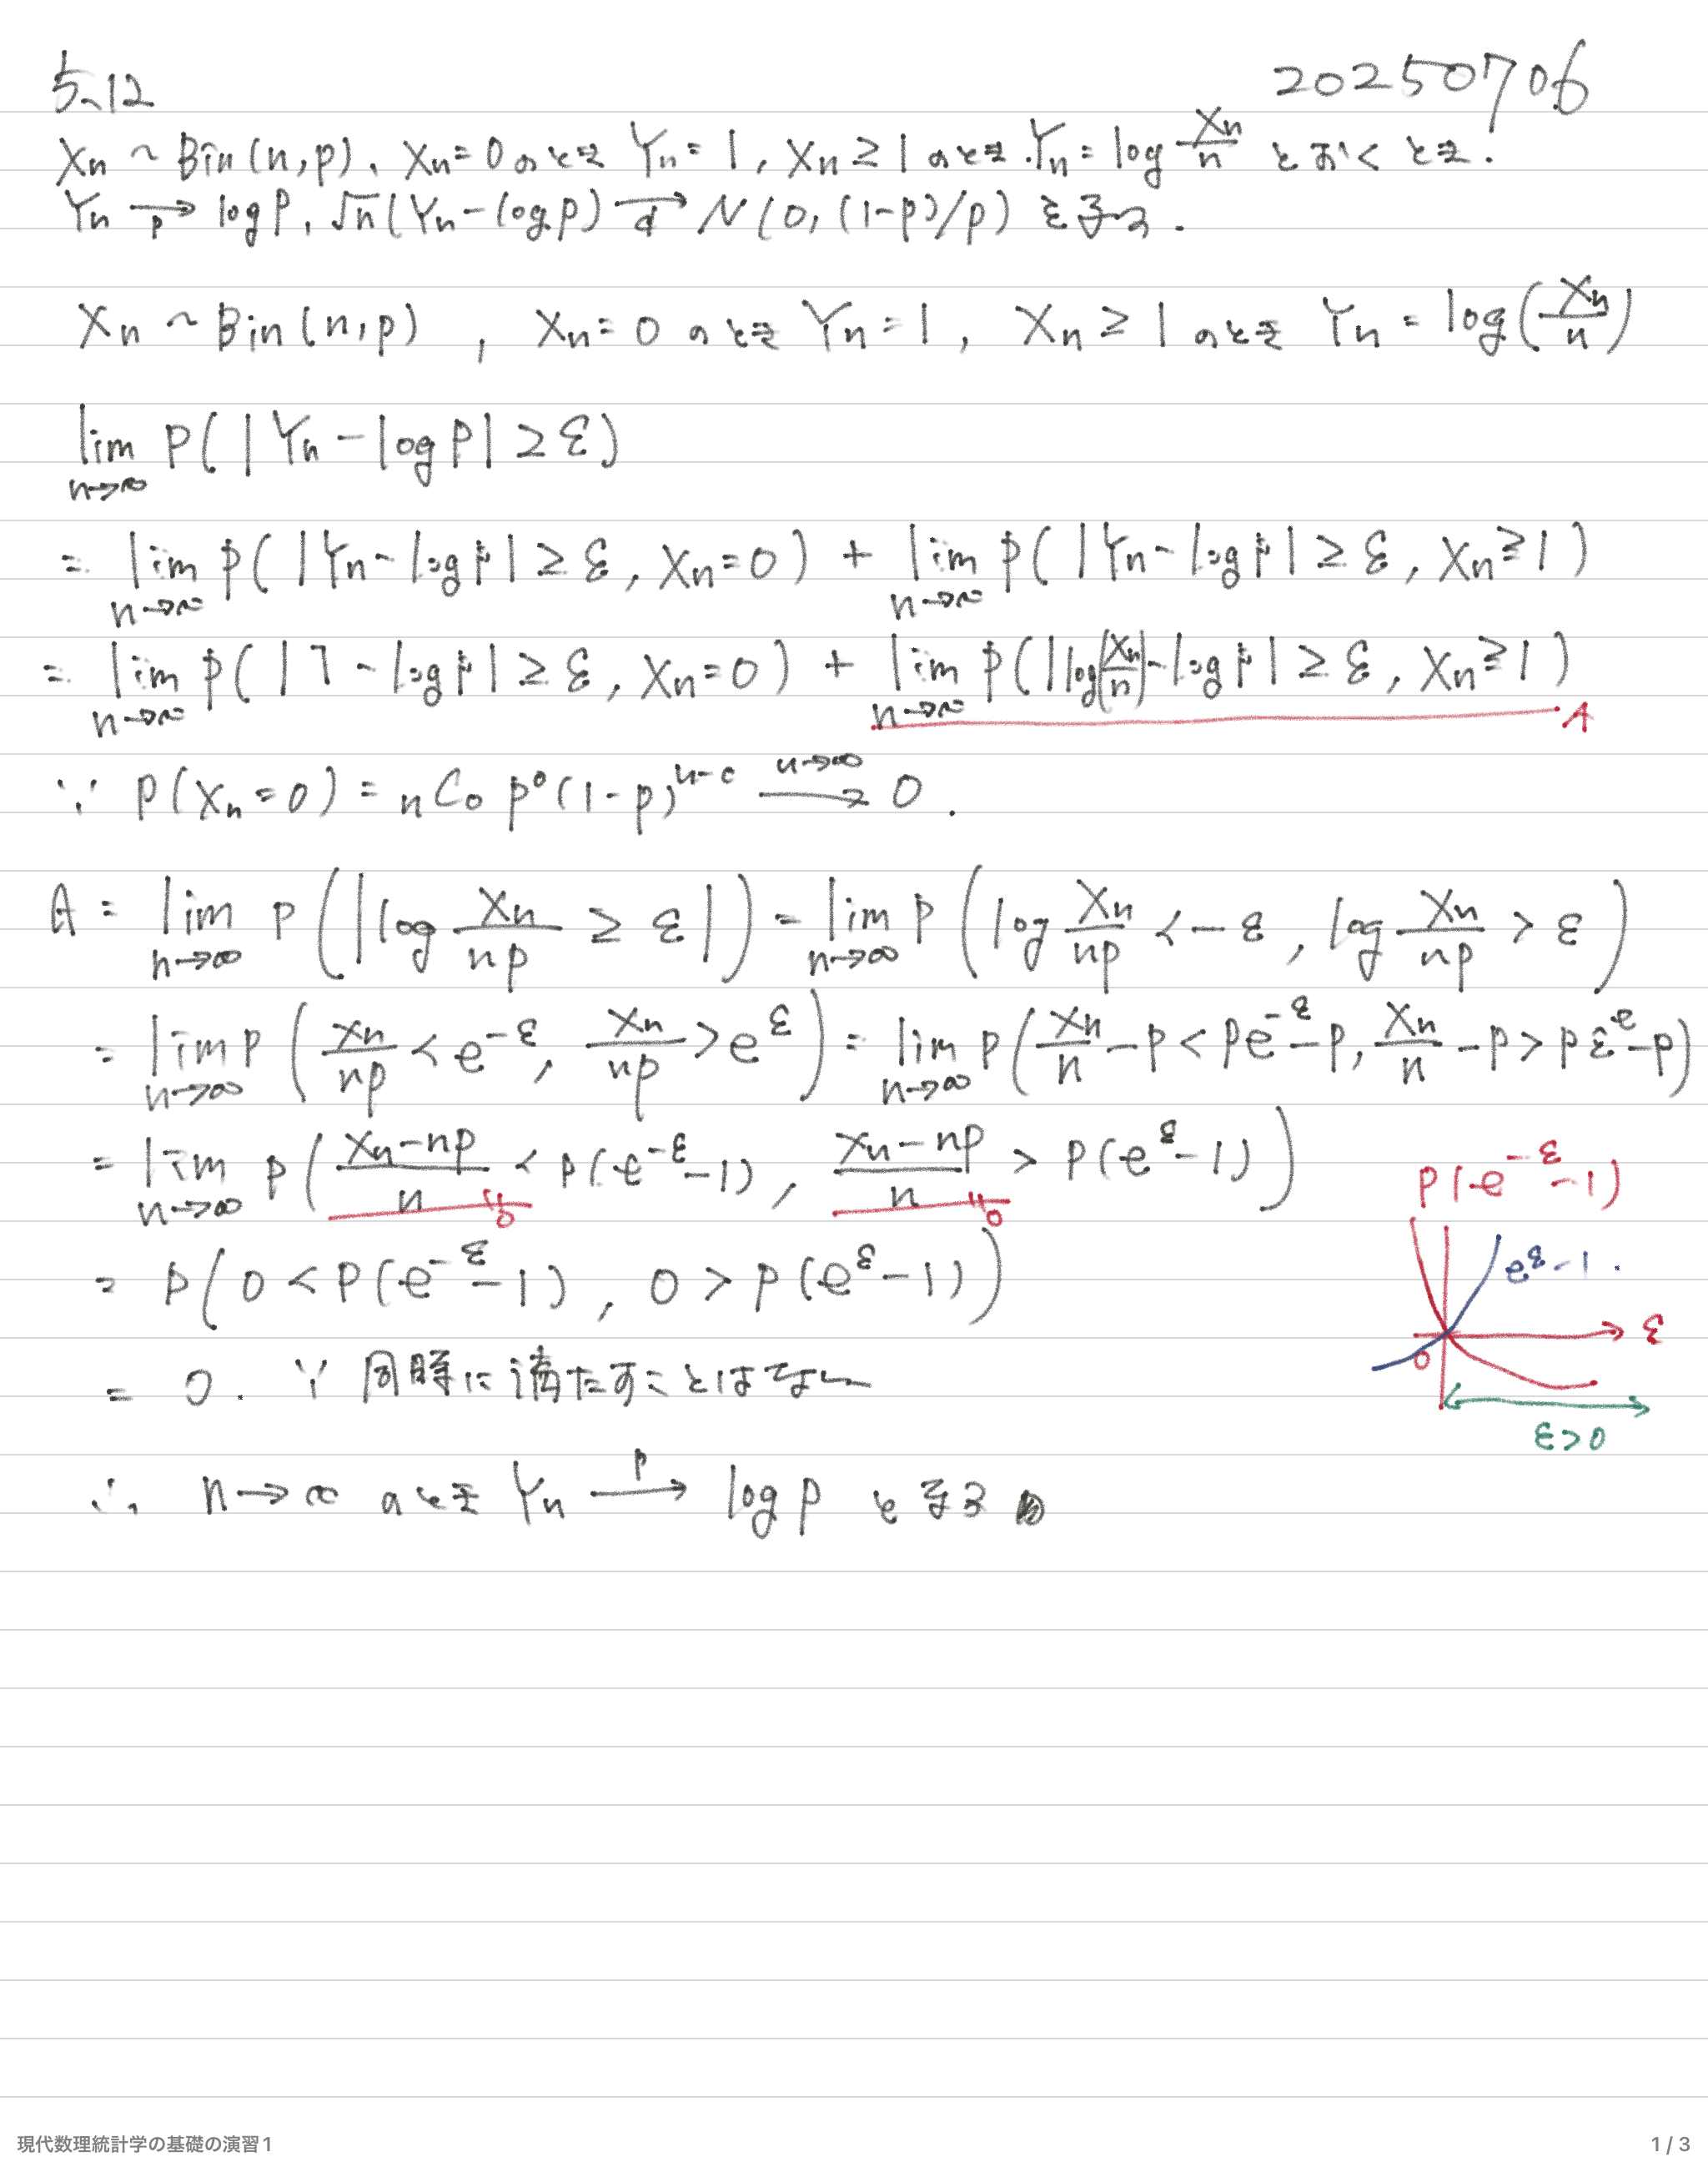 5.12
20250706
Xn ~ Bin(n,p)、Xn=0のとき Yn=1, Xn≥1のとき.Yn=log Xn/n とおくとき.
Yn →p log p, √n(Yn-log p) →d N(0,(1-p)/p)を示す.
Xn ~ Bin(n,p) , Xn=0のとき Yn=1, Xn≥1のとき Yn=log(Xn/n)
lim n→∞ P(|Yn-log p|≥ε)
= lim n→∞ P(|Yn-log p|≥ε, Xn=0) + lim n→∞ P(|Yn-log p|≥ε, Xn≥1)
= lim n→∞ P(|1-log p|≥ε, Xn=0) + lim n→∞ P(|log(Xn/n)-log p|≥ε, Xn≥1) A
∵ P(Xn=0) = nC0 p^0(1-p)^{n-0} n→∞→ 0.
A = lim n→∞ P(|log Xn/np ≥ ε|) = lim n→∞ P(log Xn/np < -ε, log Xn/np > ε)
= lim n→∞ P(Xn/np < e^{-ε}, Xn/np > e^ε) = lim n→∞ P(Xn/n - p < pe^{-ε} - p, Xn/n - p > pε^e - p)
= lim n→∞ P((Xn-np)/n < p(e^{-ε}-1), (Xn-np)/n > p(e^ε-1))
=0 =0
p(e^{-ε}-1)
= P(0 < p(e^{-ε}-1), 0 > p(e^ε-1))
e^ε-1.
ε
0
= 0. ∵ 同時に満たすことはない
ε>0
∴ n→∞ のとき Yn →p log p となる
現代数理統計学の基礎の演習1
1 / 3